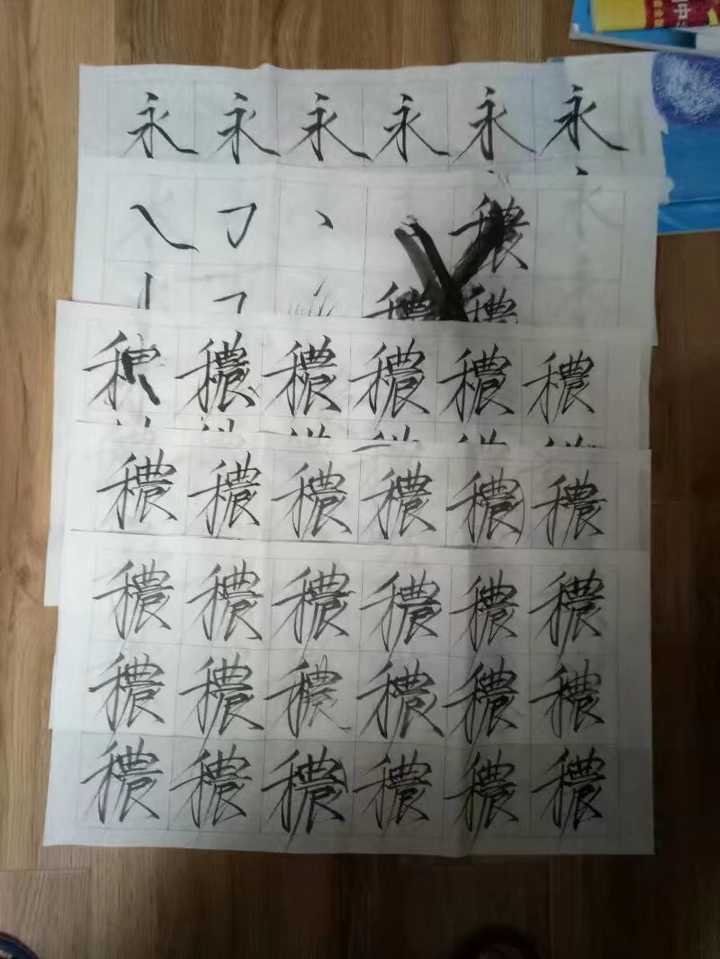 永永永永永永
穠
穠穠
穠穠穠穠穠
穠穠穠穠穠穠
穠穠穠穠穠穠
穠穠穠穠穠穠
穠穠穠穠穠穠
中